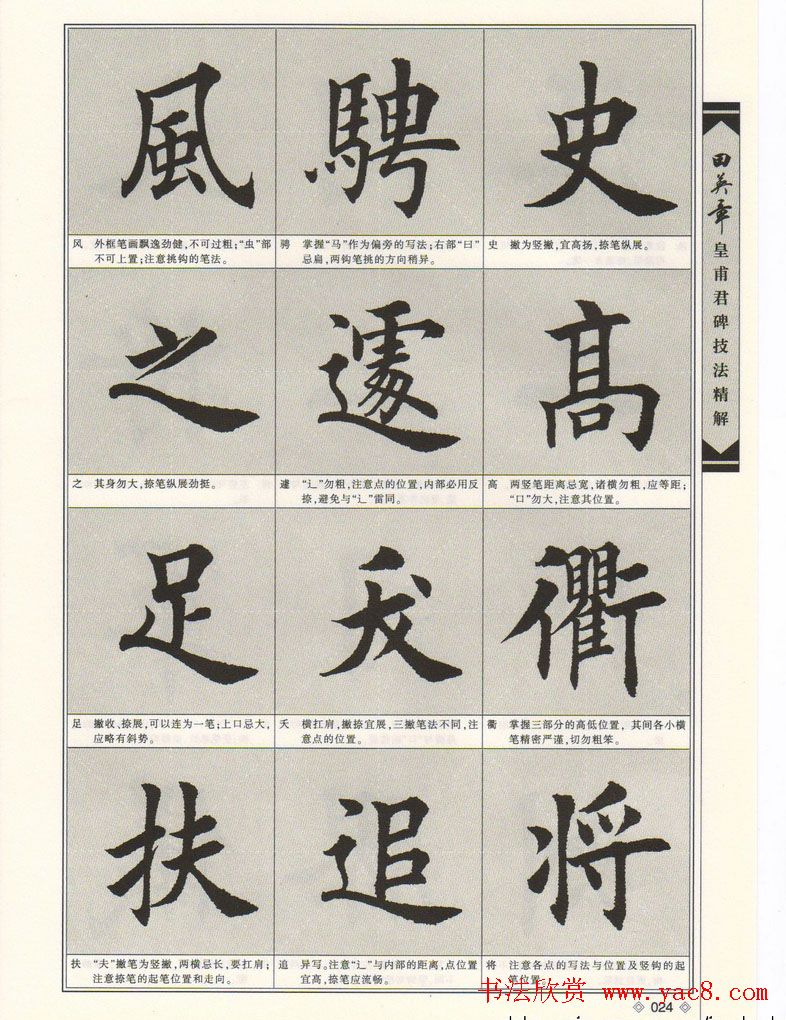 風
騁
史
风 外框笔画飘逸劲健,不可过粗;“虫”部
不可上置;注意挑钩的笔法。
骋 掌握“马”作为偏旁的写法;右部“曰”
忌扁,两钩笔挑的方向稍异。
史 撇为竖撇,宜高扬,捺笔纵展。
之
遽
高
之 其身勿大,捺笔纵展劲挺。
遽 “辶”勿粗,注意点的位置,内部必用反
捺,避免与“辶”雷同。
高 两竖笔距离忌宽,诸横勿粗,应等距;
“口”勿大,注意其位置。
足
衢
足 撇收、捺展,可以连为一笔;上口忌大,
应略有斜势。
横扛肩,撇捺宜展,三撇笔法不同,注
意点的位置。
衢 掌握三部分的高低位置,其间各小横
笔精密严谨,切勿粗笨。
扶
追
将
扶 “夫”撇笔为竖撇,两横忌长,要扛肩;
注意捺笔的起笔位置和走向。
追 异写。注意“辶”与内部的距离,点位置
宜高,捺笔应流畅。
将 注意各点的写法与位置及竖钩的起
笔位置。
田英章
皇甫君碑技法精解
书法欣赏 www.yac8.com
024